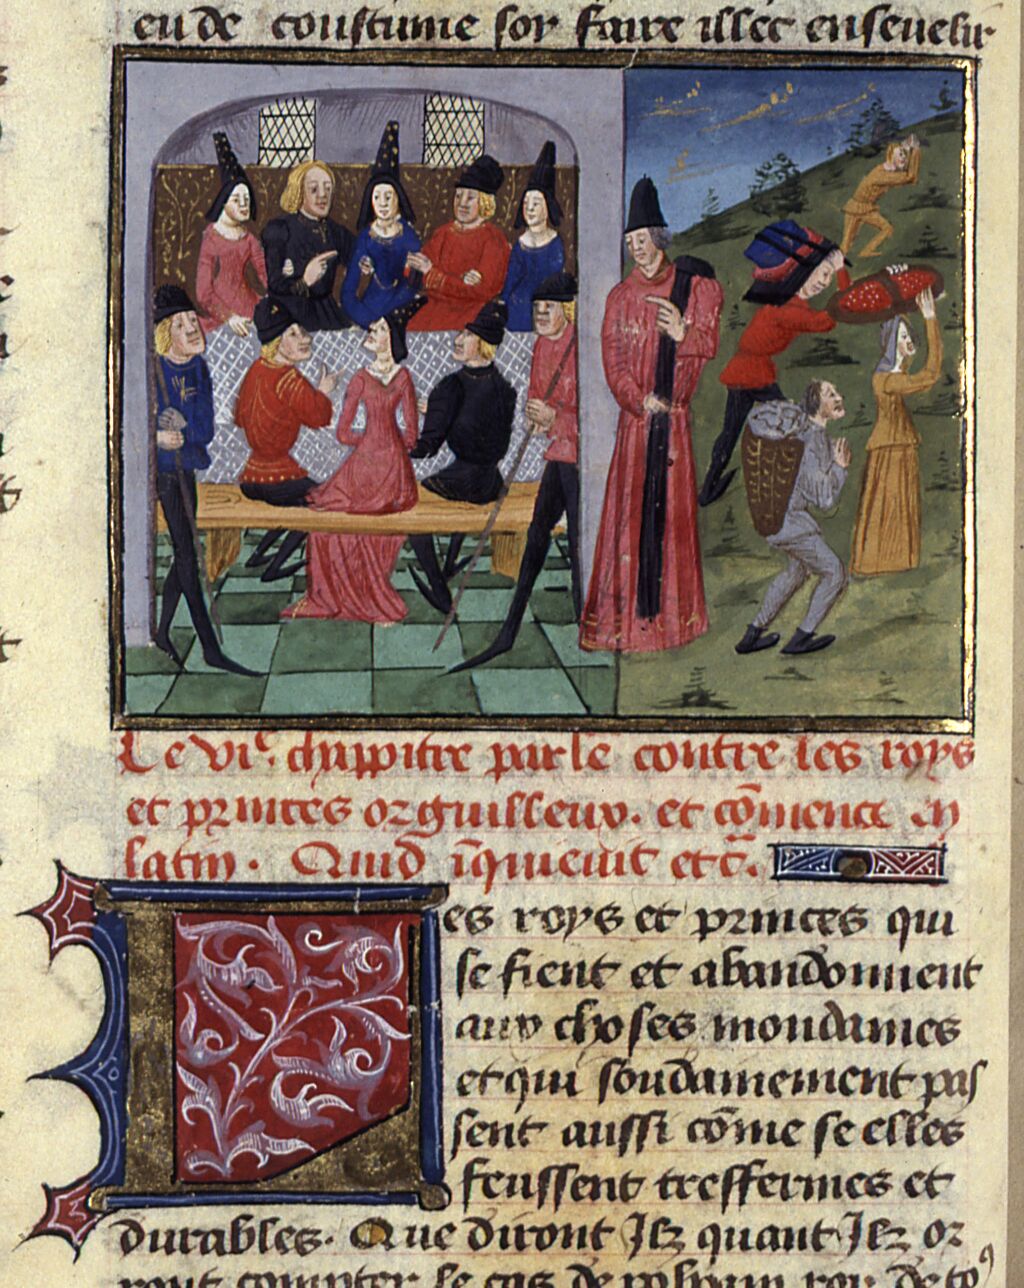 eu de coustume soy faire illec enseuelir
Le vi.e chappitre parle contre les roys
et princes orguilleux. et cōmence en
latin. Quid īquieuit etc̄.
Les roys et princes qui
se fient et abandonnent
aux choses mondaines
et qui soudainement pas
sent aussi cōme se elles
feussent tresfermes et
durables. Que diront Ilz quant Ilz or
ront compter le cas de